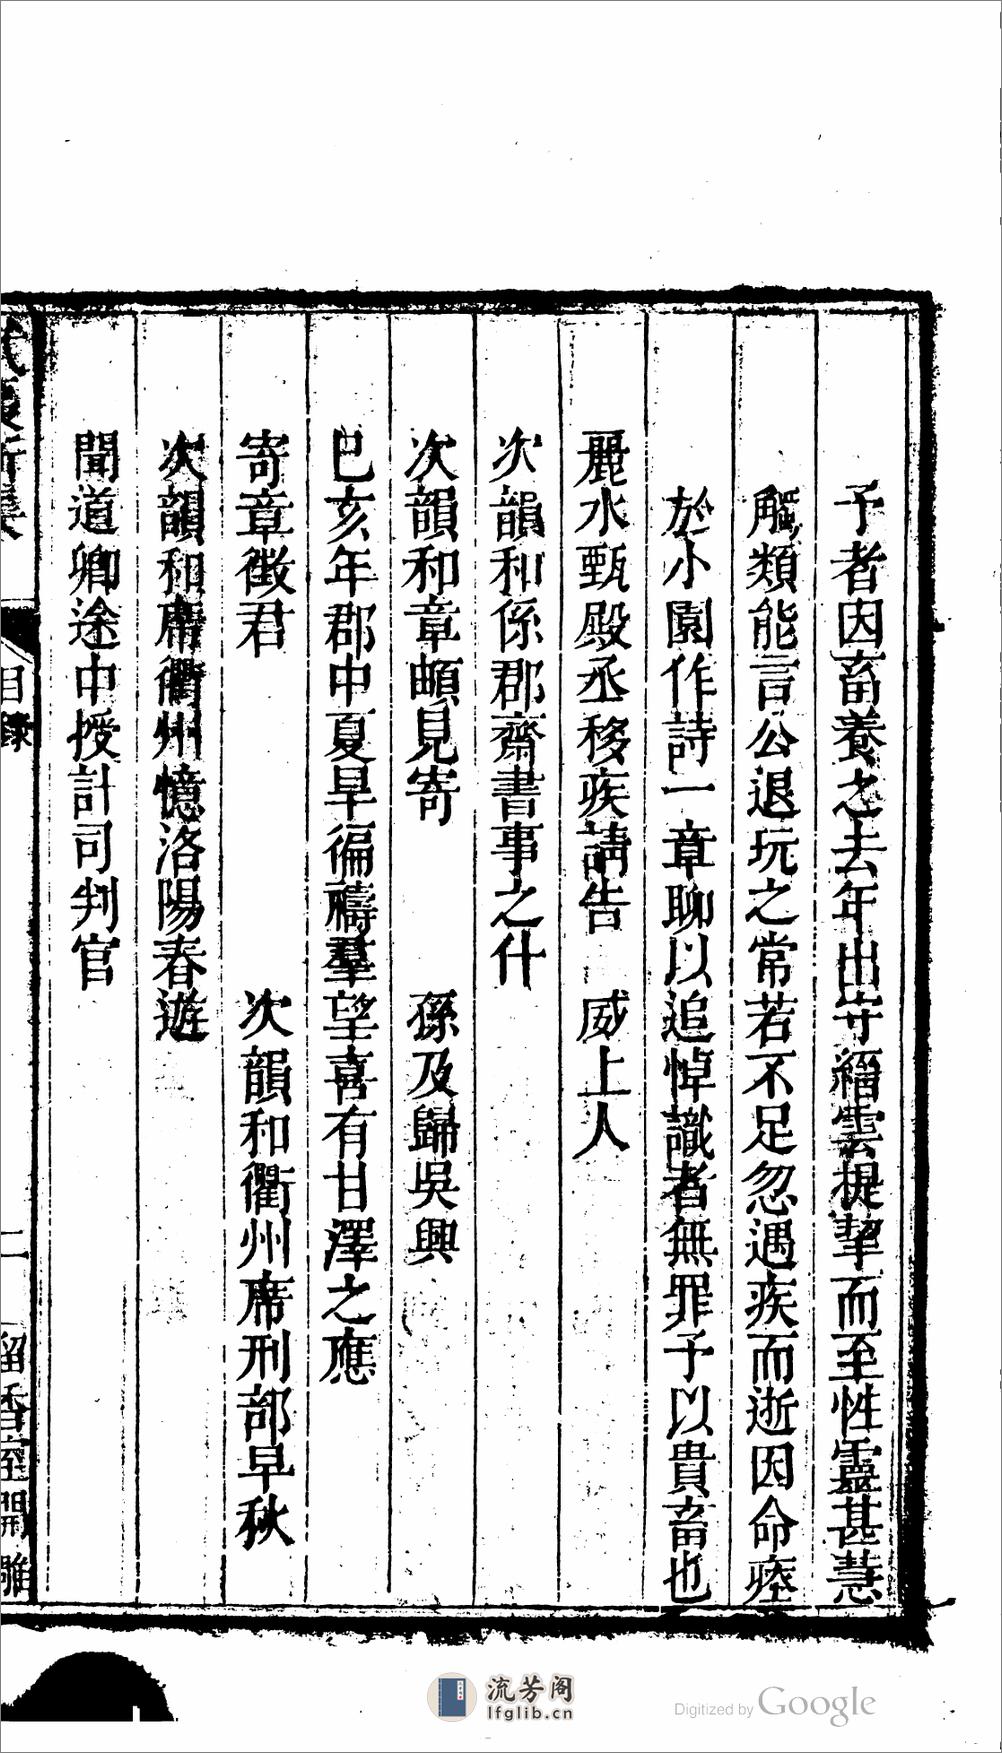 予者因畜養之去年出守縉雲提挈而至性靈甚慧
觸類能言公退玩之常若不足忽遇疾而逝因命瘞
於小園作詩一章聊以追悼識者無罪予以貴畜也
麗水甄殿丞移疾請告　威上人
次韻和係郡齋書事之什
次韻和章頔見寄　孫及歸吳興
巳亥年郡中夏旱徧禱羣望喜有甘澤之應
寄章徵君　次韻和衢州席刑部早秋
次韻和席衢州憶洛陽春遊
聞道卿途中授計司判官
武夷新集　目録　二　留香室開雕
流芳阁
lfglib.cn
Digitized by Google